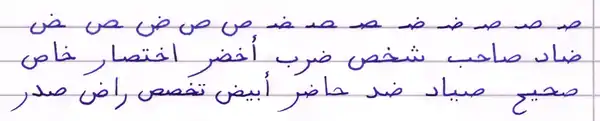 صـ صـ صـ ضـ ضـ ـصـ ـصـ ـضـ ص ص ض ـص ـض
ضاد صاحب شخص ضرب أخضر اختصار خاص
صحيح صياد ضد حاضر أبيض تخصص راض صدر